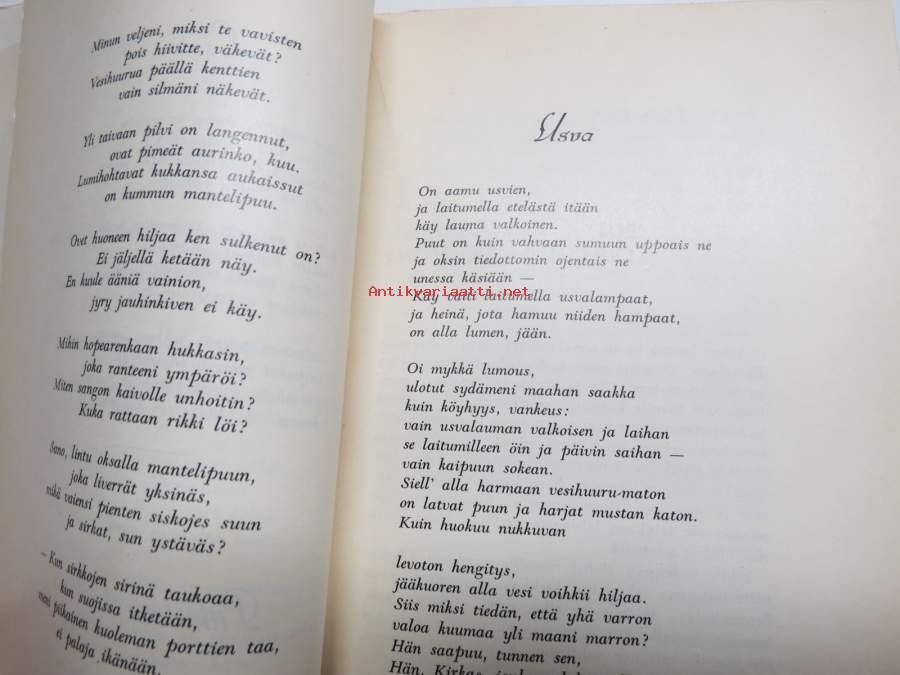 Minun veljeni, miksi te vavisten
pois hiivitte, väkevät?
Vesihuurua päällä kenttien
vain silmäni näkevät.
Yli taivaan pilvi on langennut,
ovat pimeät aurinko, kuu.
Lumihohtavat kukkansa aukaissut
on kummun mantelipuu.
Ovet huoneen hiljaa ken sulkenut on?
Ei jäljellä ketään näy.
En kuule ääniä vainion,
jyry jauhinkiven ei käy.
Mihin hopearenkaan hukkasin,
joka ranteeni ympäröi?
Miten sangon kaivolle unhoitin?
Kuka rattaan rikki löi?
Sano, lintu oksalla mantelipuun,
joka liverrät yksinäs,
mikä vaiensi pienten siskojes suun
ja sirkat, sun ystäväs?
– Kun sirkkojen sirinä taukoaa,
kun suojissa itketään,
piikainen kuoleman porttien taa,
ei palaja ikänään.
Usva
On aamu usvien,
ja laitumella etelästä itään
käy lauma valkoinen.
Puut on kuin vahvaan sumuun uppoais ne
ja oksin tiedottomin ojentais ne
unessa käsiään —
Antikvariaatti.net
Käy vaiti laitumella usvalampaat,
ja heinä, jota hamuu niiden hampaat,
on alla lumen, jään.
Oi mykkä lumous,
ulotut sydämeni maahan saakka
kuin köyhyys, vankeus:
vain usvalauman valkoisen ja laihan
se laitumilleen öin ja päivin saihan —
vain kaipuun sokean.
Siell' alla harmaan vesihuuru-maton
on latvat puun ja harjat mustan katon.
Kuin huokuu nukkuvan
levoton hengitys,
jääkuoren alla vesi voihkii hiljaa.
Siis miksi tiedän, että yhä varron
valoa kuumaa yli maani marron?
Hän saapuu, tunnen sen,
Hän, Kirkas,